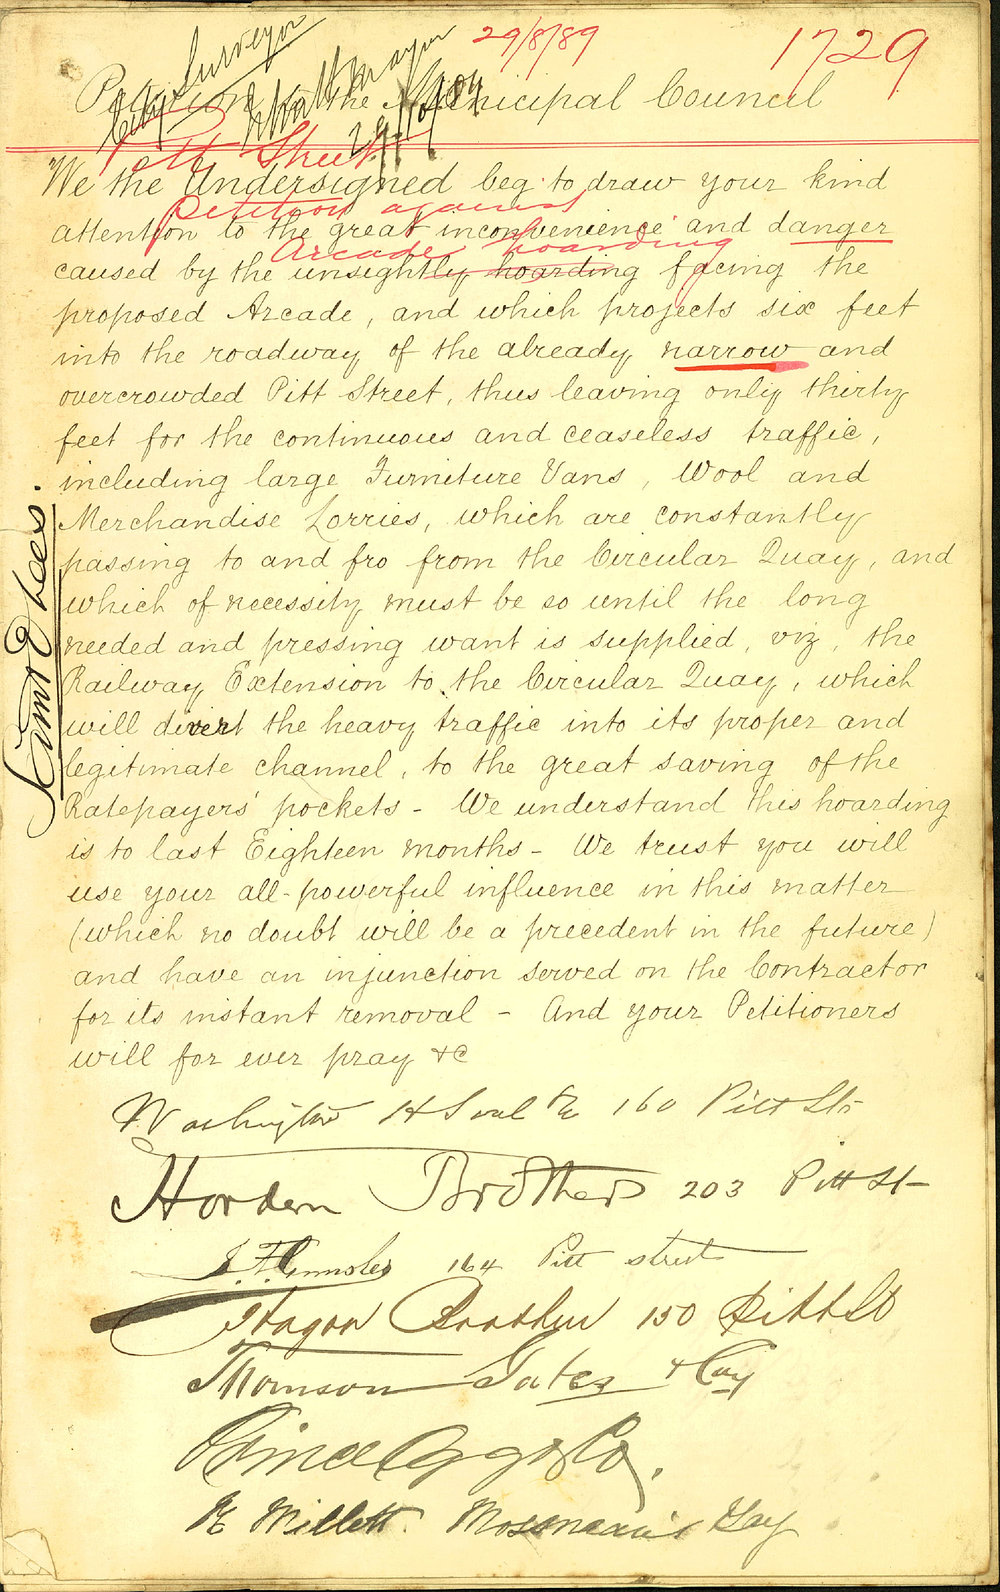 29/8/89
1729
City Surveyor
Petition to the Municipal Council
Pitt Street
We the Undersigned beg to draw your kind
Petition against
attention to the great inconvenience and danger
Arcade hoarding
caused by the unsightly hoarding facing the
proposed Arcade, and which projects six feet
into the roadway of the already narrow and
overcrowded Pitt Street, thus leaving only thirty
feet for the continuous and ceaseless traffic,
including large Furniture Vans, Wool and
Merchandise Lorries, which are constantly
passing to and fro from the Circular Quay, and
which of necessity must be so until the long
needed and pressing want is supplied, viz, the
Railway Extension to the Circular Quay, which
will divert the heavy traffic into its proper and
legitimate channel, to the great saving of the
Ratepayers' pockets - We understand this hoarding
is to last Eighteen months - We trust you will
use your all-powerful influence in this matter
(which no doubt will be a precedent in the future)
and have an injunction served on the Contractor
for its instant removal - And your Petitioners
will for ever pray &c
Washington H Soul & Co 160 Pitt St
Hordern Brothers 203 Pitt St
164 Pitt street
Hagon Brothers 150 Pitt St
Thomson Gates & Coy
Prince Ogg & Co.
Millett Mossman's Bay
Saml E Lees.